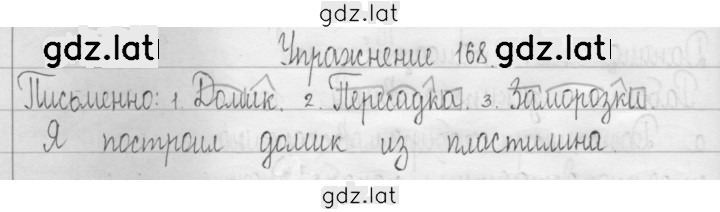 gdz.lat
gdz.lat Упражнение 168. gdz.lat
Письменно: 1. Домик. 2. Пересадка. 3. Заморозки
Я построил домик из пластилина.
gdz.lat